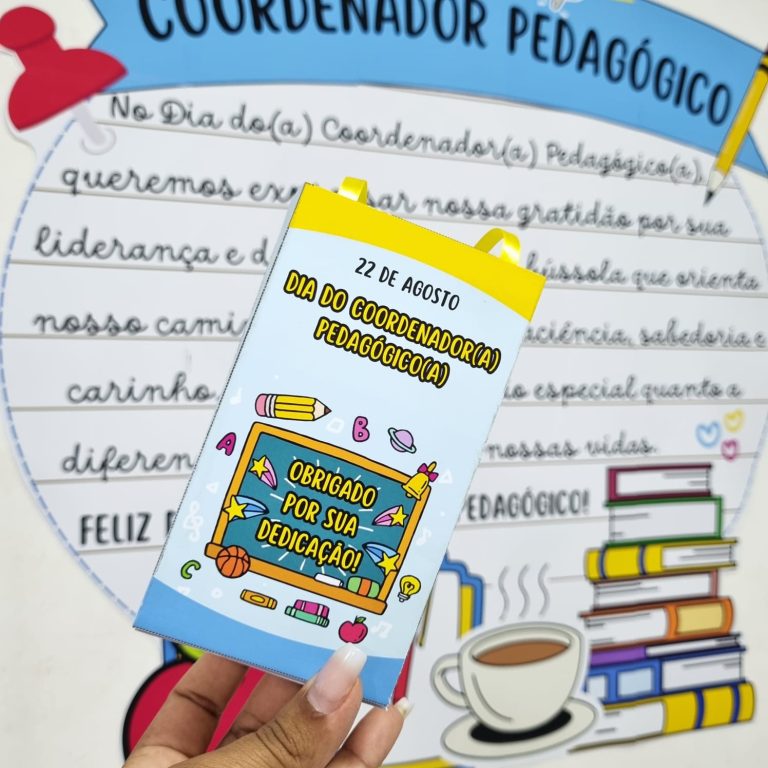 COORDENADOR PEDAGÓGICO
No Dia do(a) Coordenador(a) Pedagógico(a),
queremos nossa gratidão por sua
liderança e bússola que orienta
nosso sabedoria e
carinho, especial quanto a
nossas vidas.
FELIZ PEDAGÓGICO!
22 DE AGOSTO
DIA DO COORDENADOR(A)
PEDAGÓGICO(A)
A
B
C
OBRIGADO
POR SUA
DEDICAÇÃO!